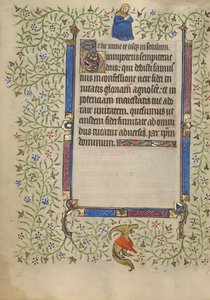 Ex hoc nunc et usqz in seculum.
Omnipotens sempiterne
deus: qui dedisti famul
tuis in confessione vere fidei
nitatis gloriam agnosce: et in
potentiam maiestatis tue ad
rare unitatem. quesumus ut
eiusdem fidei firmitate ab omni
bus tueatur adversis. Per xpm
dominum.